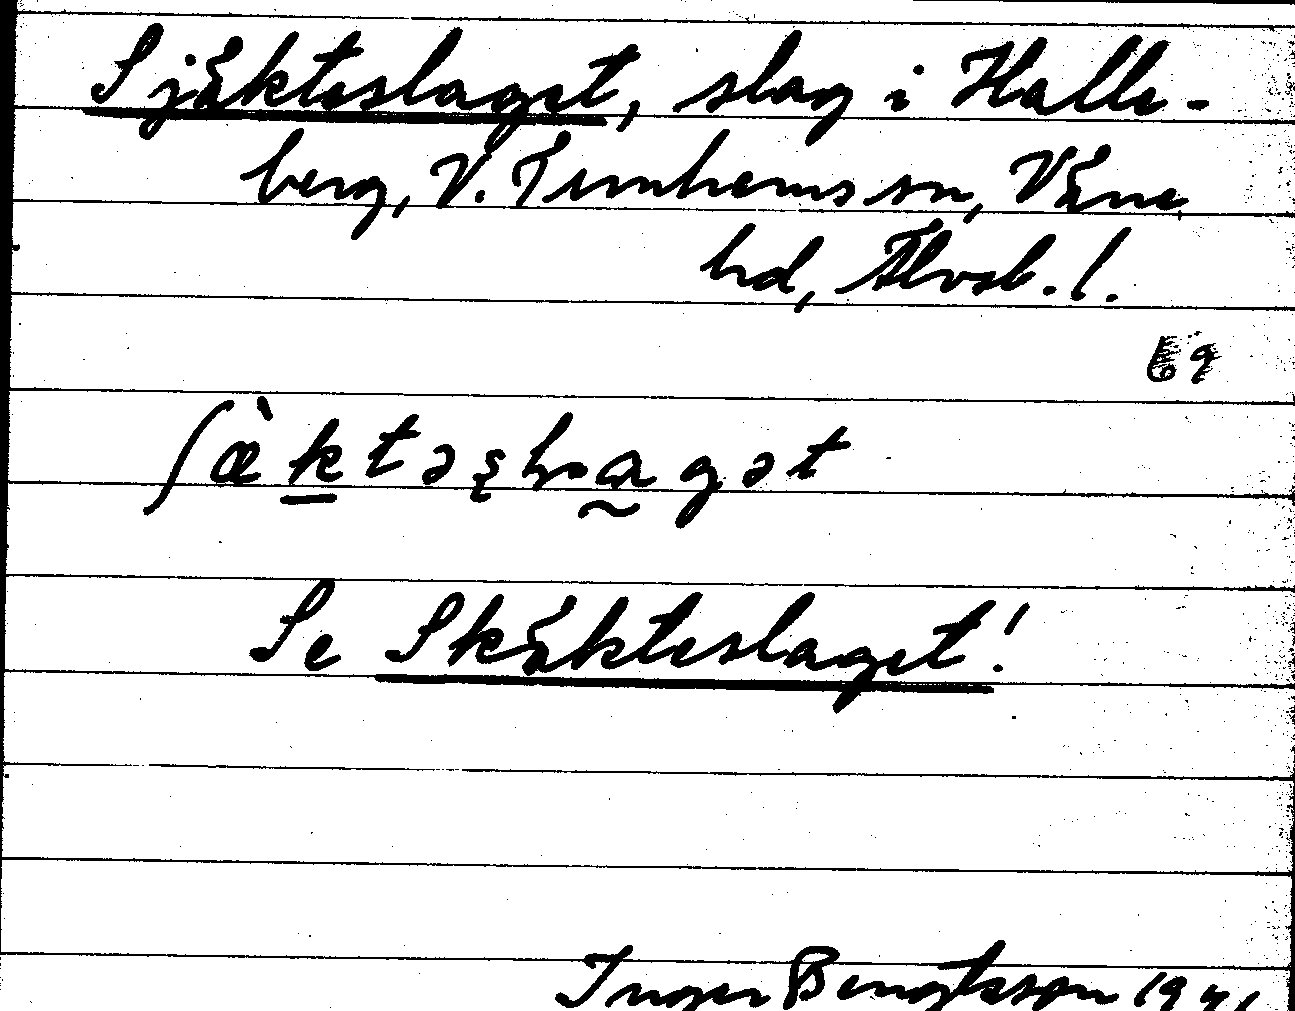 Sjäkteslaget, slag i Halle-
berg, V. Tunhems sn, Väne
hd, Älvsb. l.
69
ʃæ̀ktəslagət
Se Skäkteslaget!
Inger Bengtsson 1941